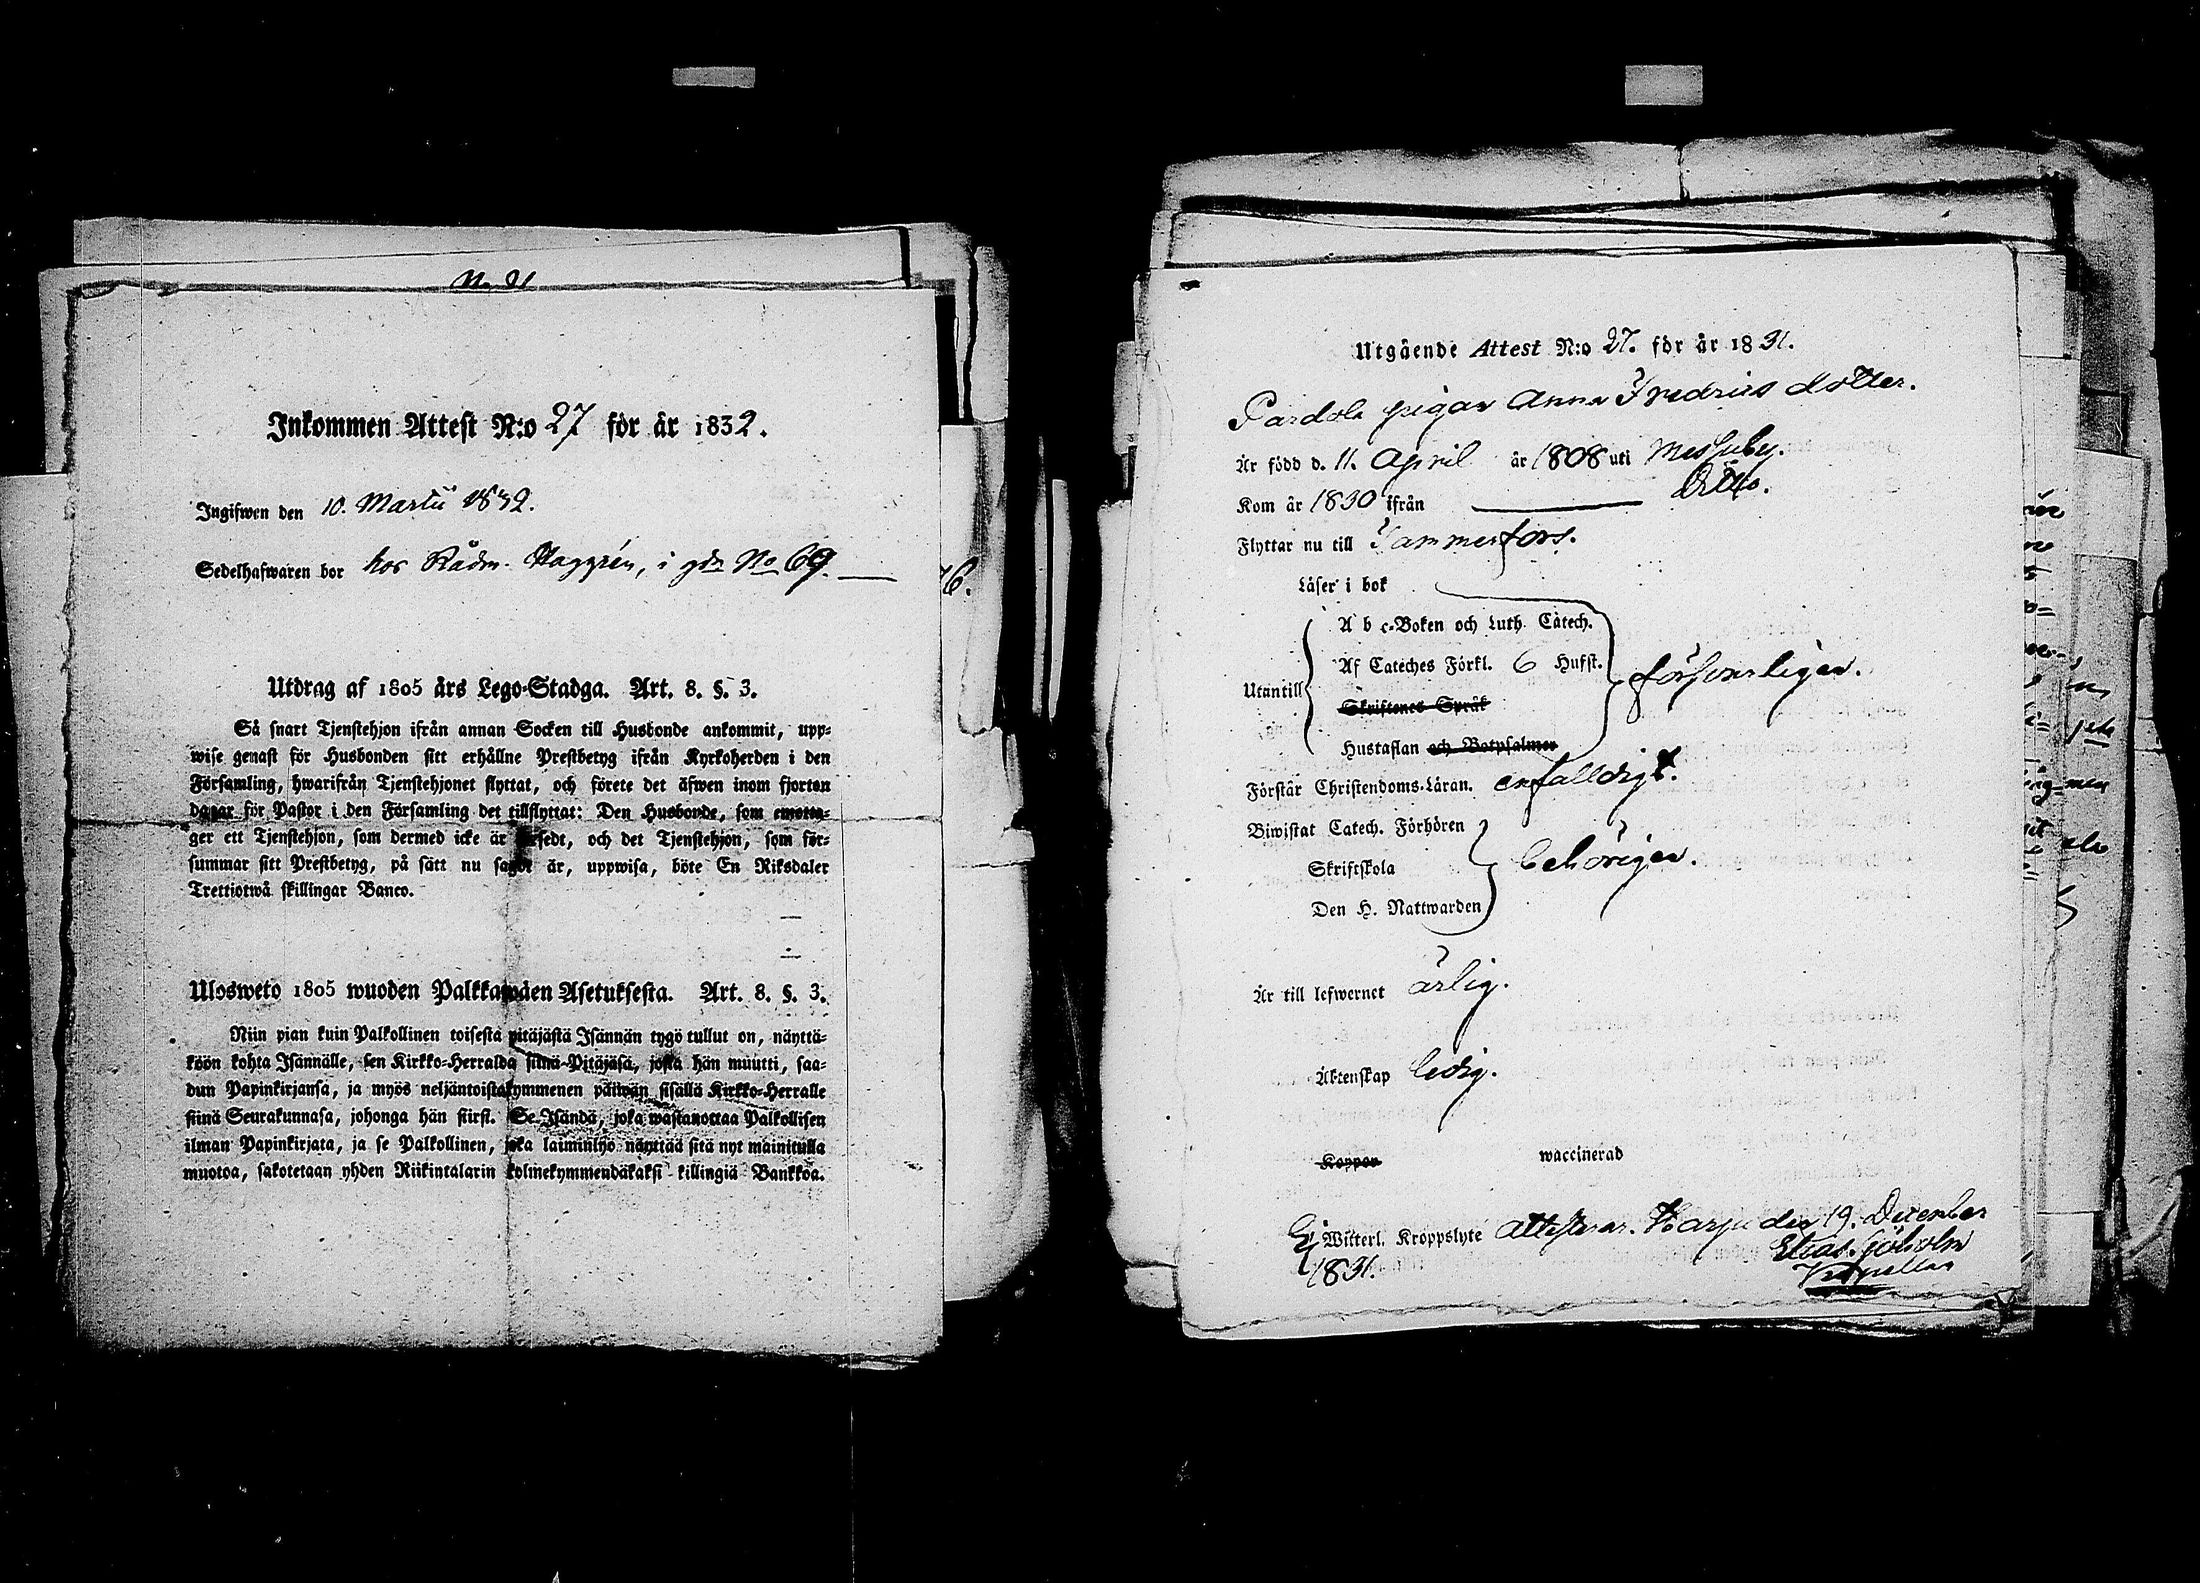 Inkommen Attest N:o 27 för år 1832.
Ingifwen den 10. Martii 1832.
Sedelhafwaren bor hos Rådm. Haggrén, i gdn No 69.
Utdrag af 1805 års Lego-Stadga. Art. 8. §. 3.
Så snart Tjenstehjon ifrån annan Socken till Husbonde ankommit, upp-
wise genast för Husbonden sitt erhållne Prestbetyg ifrån Kyrkoherden i den
Församling, hwarifrån Tjenstehjonet flyttat, och förete det äfwen inom fjorton
dagar för Pastor i den Församling det tillflyttat: Den Husbonde, som emotta-
ger ett Tjenstehjon, som dermed icke är försedt, och det Tjenstehjon, som för-
summar sitt Prestbetyg, på sätt nu sagdt är, uppwisa, böte En Riksdaler
Trettiotwå skillingar Banco.
Ulosweto 1805 wuoden Palkkawäen Asetuksesta. Art. 8. §. 3.
Niin pian kuin Palkollinen toisesta pitäjästä Isännän tygö tullut on, näyttä-
köön kohta Isännälle, sen Kirkko-Herralda siinä Pitäjäsä, josta hän muutti, saa-
dun Papinkirjansa, ja myös neljäntoistakymmenen päiwän sisällä Kirkko-Herralle
siinä Seurakunnasa, johonga hän siirsi. Se Isändä, joka wastanottaa Palkollisen
ilman Papinkirjata, ja se Palkollinen, joka laiminlyö näyttää sitä nyt mainitulla
muotoa, sakotetaan yhden Riikintalarin kolmekymmendäkaksi killingiä Bankkoa.
No 21
76.
Utgående Attest N:o 27. för år 1831.
Pardola pigan Anna Fredrics dotter.
Är född d. 11. April år 1808 uti Messuby.
Kom år 1830 ifrån Ditto.
Flyttar nu till Tammerfors.
Läser i bok
A b c-Boken och Luth. Catech.
Af Cateches Förkl. 6 Hufst.
Utantill försvarligen.
Skriftenes Språk
Hustaflan och Botpsalmer
Förstår Christendoms-Läran. enfalldigt.
Biwistat Catech. Förhören
Skriftskola behörigen.
Den H. Nattwarden
Är till lefwernet ärlig.
Äktenskap ledig.
Koppor waccinerad
Ej Witterl. Kroppslyte attesterar. Harju den 19. December
1831.